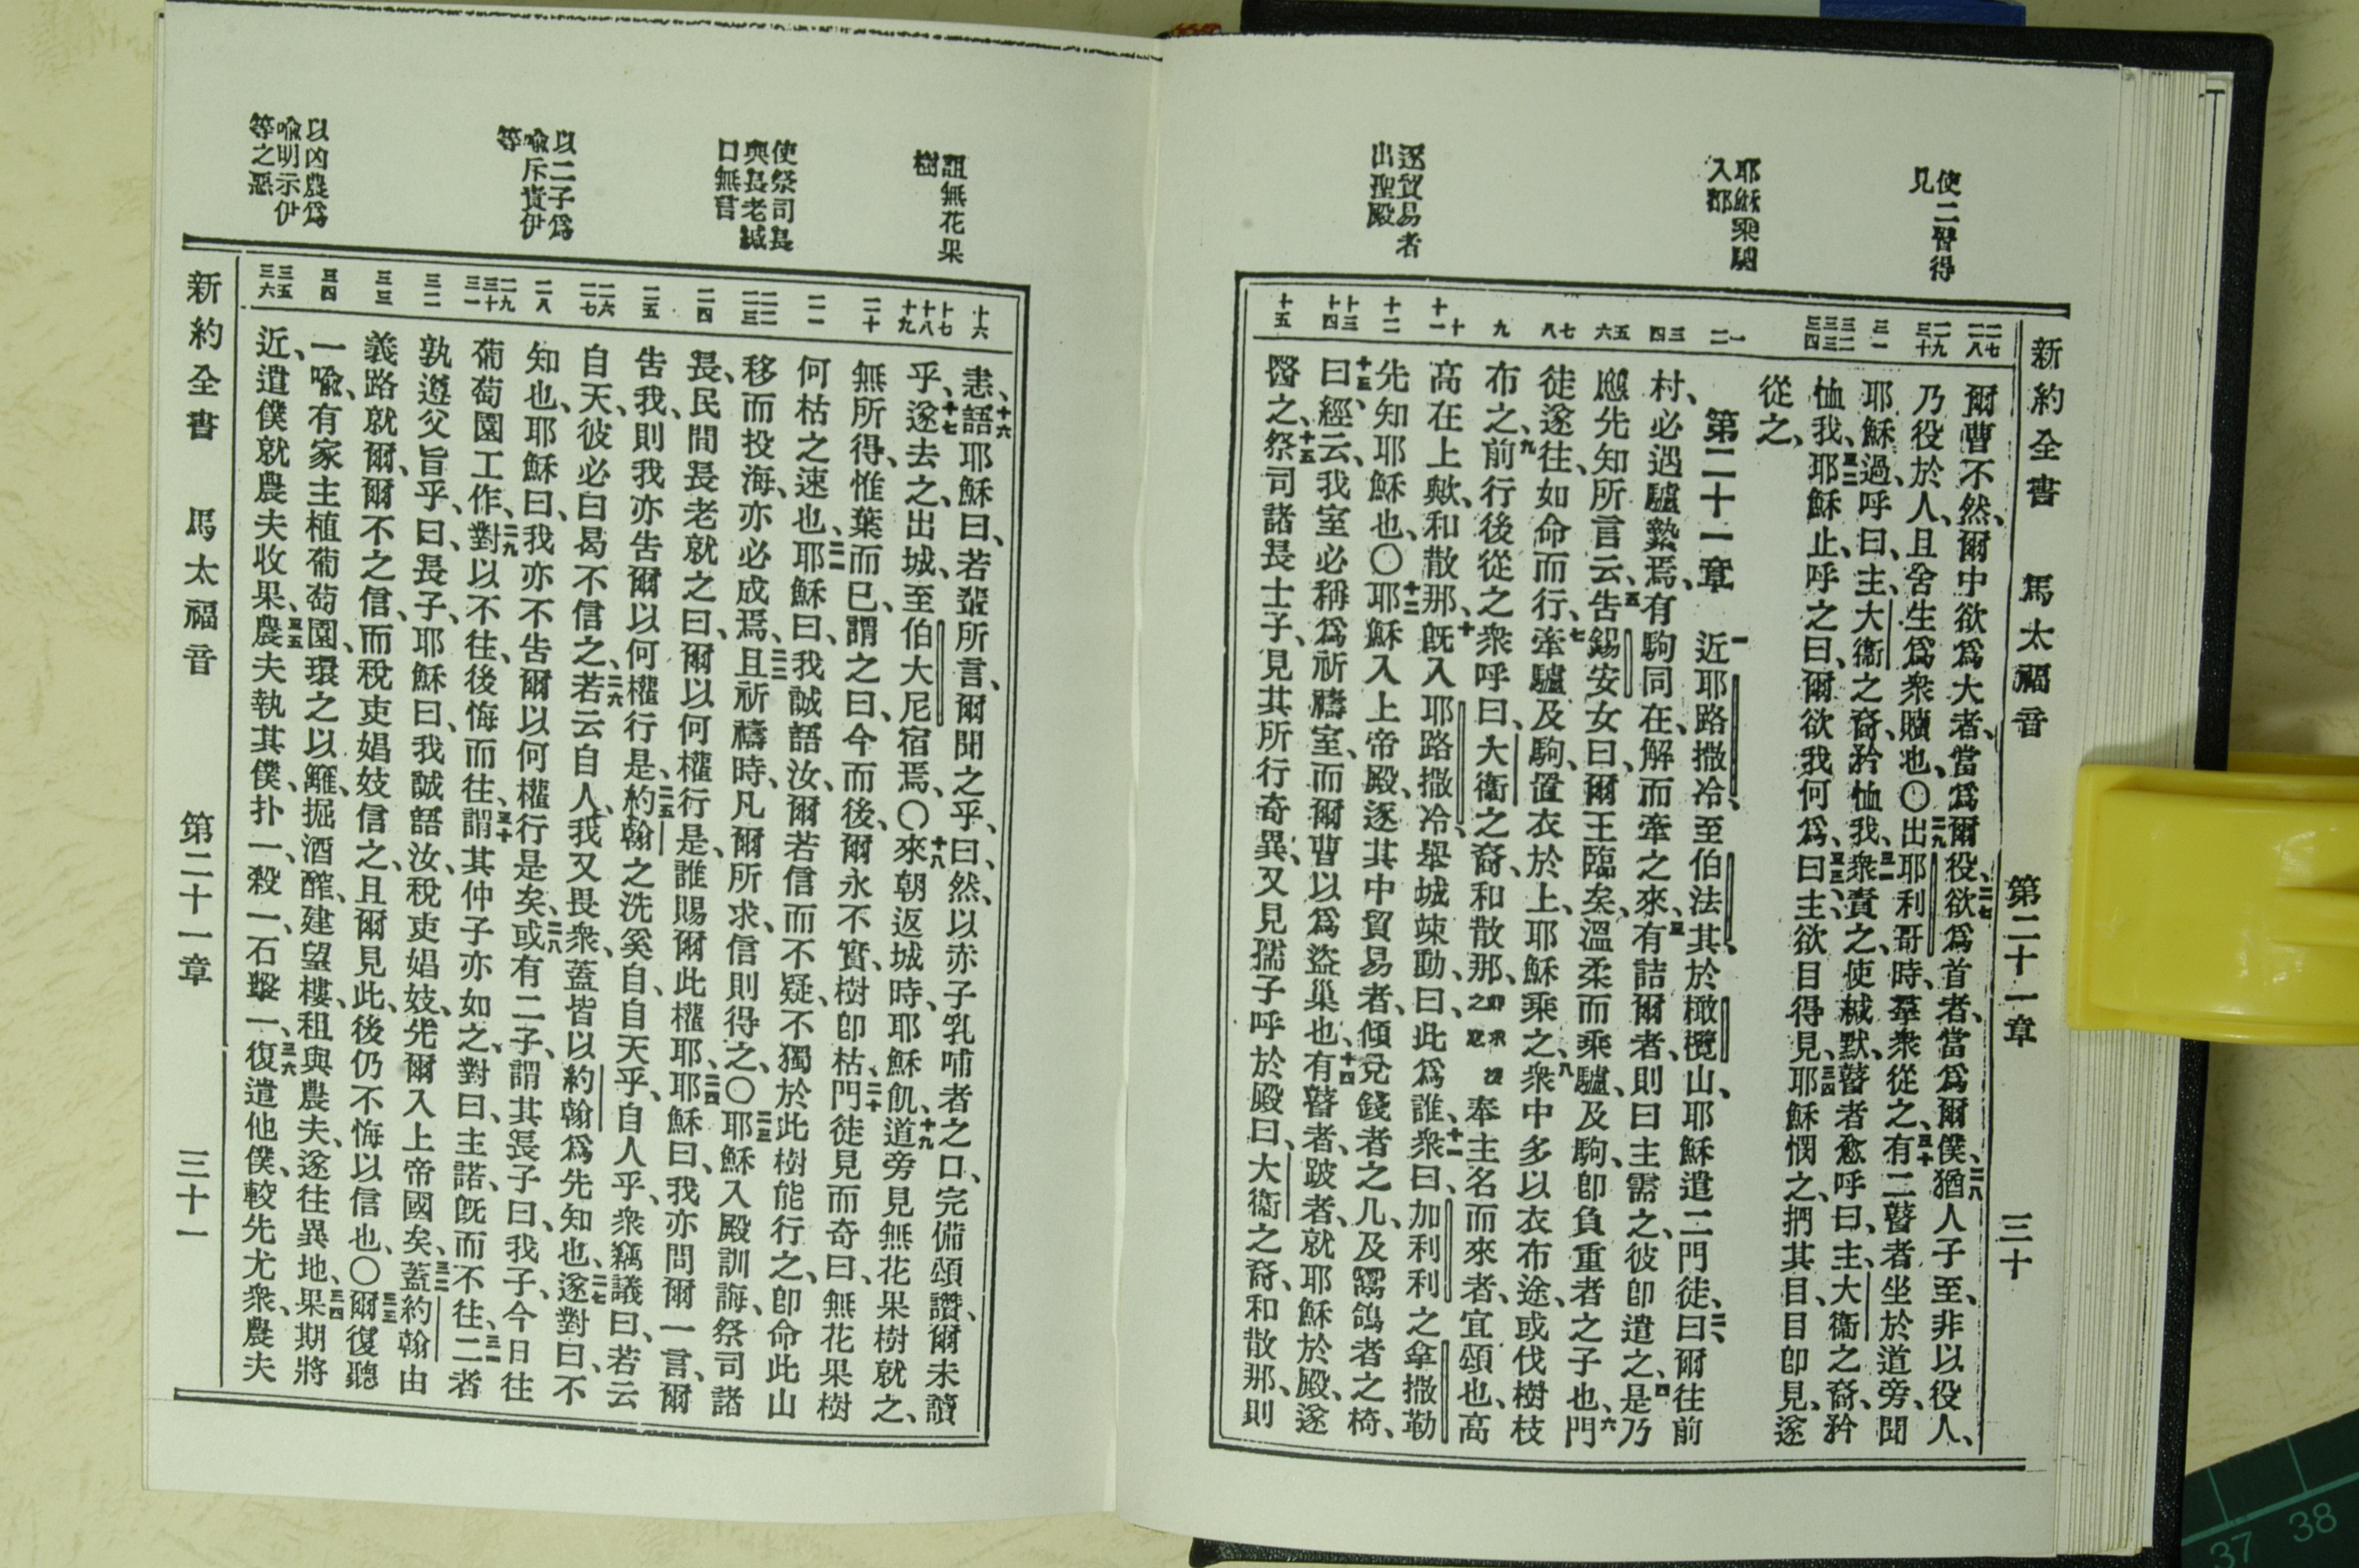 新約全書 馬太福音 第二十一章 三十
使二瞽得
見
耶穌乘驢
入都
逐貿易者
出聖殿
二七
二八
二九
三十
三一
三二
三三
三四
一
二
三
四
五
六
七
八
九
十
十一
十二
十三
十四
十五
爾曹不然、爾中欲爲大者、當爲爾役、二七欲爲首者、當爲爾僕、二八猶人子至、非以役人、
乃役於人、且舍生爲衆贖也、〇二九出耶利哥時、羣衆從之、三十有二瞽者坐於道旁、聞
耶穌過、呼曰、主、大衞之裔、矜恤我、三一衆責之、使緘默、瞽者愈呼曰、主、大衞之裔、矜
恤我、三二耶穌止、呼之曰、爾欲我何爲、三三曰、主、欲目得見、三四耶穌憫之、捫其目、目卽見、遂
從之、
第二十一章 一近耶路撒冷、至伯法其、於橄欖山、耶穌遣二門徒、二曰、爾往前
村、必遇驢縶焉、有駒同在、解而牽之來、三有詰爾者、則曰主需之、彼卽遣之、四是乃
應先知所言云、五告錫安女曰、爾王臨矣、溫柔而乘驢、及駒、卽負重者之子也、六門
徒遂往、如命而行、七牽驢及駒、置衣於上、耶穌乘之、八衆中多以衣布途、或伐樹枝
布之、九前行後從之衆呼曰、大衞之裔、和散那、卽求救之意奉主名而來者、宜頌也、高
高在上歟、和散那、十旣入耶路撒冷、舉城竦動、曰、此爲誰、十一衆曰、加利利之拿撒勒
先知耶穌也、〇十二耶穌入上帝殿、逐其中貿易者、傾兌錢者之几、及鬻鴿者之椅、
十三曰、經云、我室必稱爲祈禱室、而爾曹以爲盜巢也、十四有瞽者、跛者、就耶穌於殿、遂
醫之、十五祭司諸長士子、見其所行奇異、又見孺子呼於殿曰、大衞之裔、和散那、則
詛無花果
樹
使祭司長
與長老緘
口無言
以二子爲
喩斥責伊
等
以凶農爲
喩明示伊
等之惡
十六
十七
十八
十九
二十
二一
二二
二三
二四
二五
二六
二七
二八
二九
三十
三一
三二
三三
三四
三五
三六
恚、十六語耶穌曰、若輩所言、爾聞之乎、曰、然、以赤子乳哺者之口、完備頌讚、爾未讀
乎、十七遂去之、出城、至伯大尼宿焉、〇十八來朝返城時、耶穌飢、十九道旁見無花果樹就之、
無所得、惟葉而已、謂之曰、今而後、爾永不實、樹卽枯、二十門徒見而奇曰、無花果樹
何枯之速也、二一耶穌曰、我誠語汝、爾若信而不疑、不獨於此樹能行之、卽命此山
移而投海、亦必成焉、二二且祈禱時、凡爾所求、信則得之、〇二三耶穌入殿訓誨、祭司諸
長、民間長老就之曰、爾以何權行是、誰賜爾此權耶、二四耶穌曰、我亦問爾一言、爾
告我、則我亦告爾以何權行是、二五約翰之洗奚自、自天乎、自人乎、衆竊議曰、若云
自天、彼必曰曷不信之、二六若云自人、我又畏衆、蓋皆以約翰爲先知也、二七遂對曰、不
知也、耶穌曰、我亦不告爾以何權行是矣、二八或有二子、謂其長子曰、我子、今日往
葡萄園工作、二九對以不往、後悔而往、三十謂其仲子亦如之、對曰、主諾、旣而不往、三一二者
孰遵父旨乎、曰、長子、耶穌曰、我誠語汝、稅吏娼妓、先爾入上帝國矣、三二蓋約翰由
義路就爾、爾不之信、而稅吏娼妓信之、且爾見此、後仍不悔以信也、〇三三爾復聽
一喩、有家主植葡萄園、環之以籬、掘酒醡、建望樓、租與農夫、遂往異地、三四果期將
近、遣僕就農夫收果、三五農夫執其僕、扑一、殺一、石擊一、三六復遣他僕、較先尤衆、農夫
新約全書 馬太福音 第二十一章 三十一
37 38